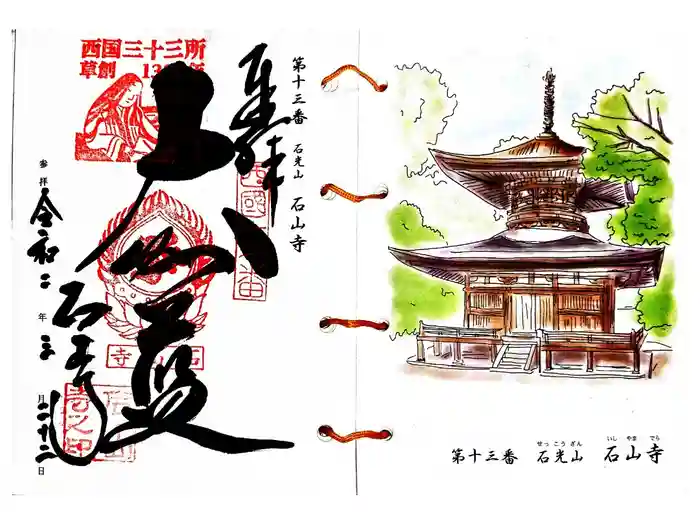 第十三番 石光山 石山寺
奉拝
大伽藍
石山寺
参拝 令和二年三月二十二日
西国三十三所
草創 13
せっこうざん いしやまでら
第十三番 石光山 石山寺